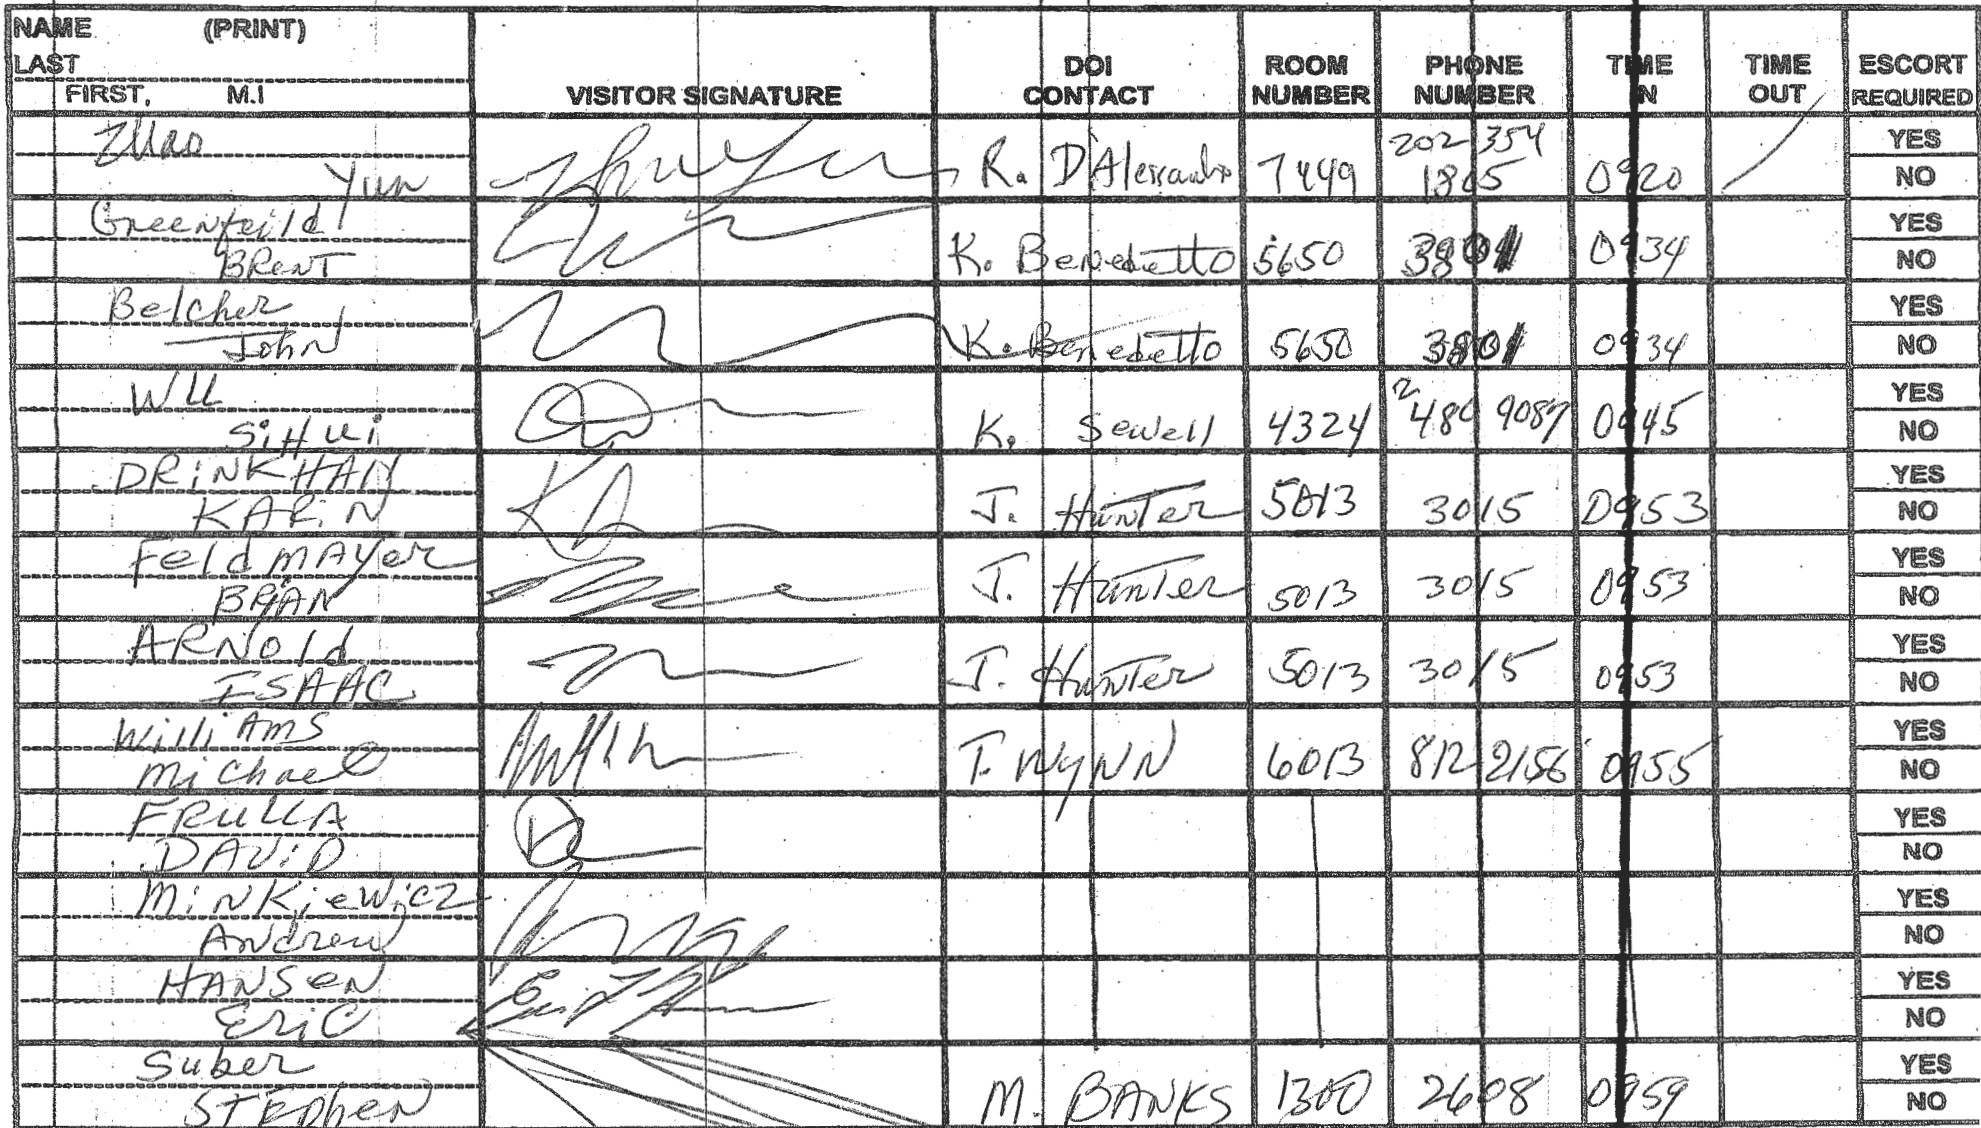 NAME (PRINT)
LAST
FIRST, M.I
VISITOR SIGNATURE
DOI CONTACT
ROOM NUMBER
PHONE NUMBER
TIME IN
TIME OUT
ESCORT REQUIRED
Zhao 202 354 YES
Yun R. D'Alessandro 7449 1805 0920 NO
Greenfeild YES
BRENT K. Benedetto 5650 0934 NO
Belcher YES
John K. Benedetto 5650 0934 NO
WU YES
SiHui K. Sewell 4324 9087 0945 NO
DRiNKHAN YES
KARiN J. Hunter 5013 3015 0953 NO
FeldmAyer YES
BRiAN J. Hunter 5013 3015 0953 NO
ARNOld YES
ISAAC J. Hunter 5013 3015 0953 NO
WilliAms YES
Michael T. WyNN 6013 812 2156 0955 NO
FRULLA YES
DAViD NO
MiNKiewicz YES
Andrew NO
HANSeN YES
EriC NO
Suber YES
STEPheN M. BANKS 1300 2608 0959 NO